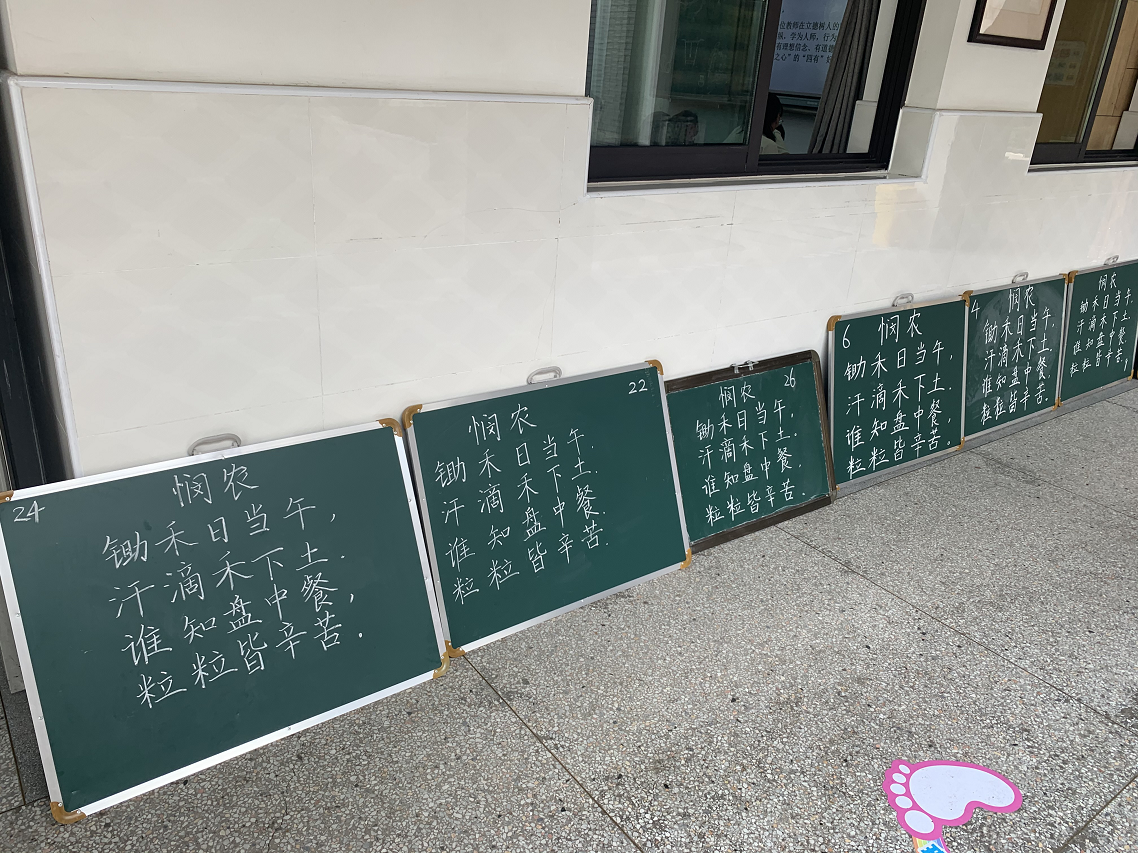 24
悯农
锄禾日当午，
汗滴禾下土.
谁知盘中餐，
粒粒皆辛苦.
22
悯农
锄禾日当午.
汗滴禾下土.
谁知盘中餐.
粒粒皆辛苦.
26
悯农
锄禾日当午，
汗滴禾下土.
谁知盘中餐，
粒粒皆辛苦.
6
悯农
锄禾日当午，
汗滴禾下土.
谁知盘中餐，
粒粒皆辛苦.
4
悯农
锄禾日当午，
汗滴禾下土.
谁知盘中餐
粒粒皆辛苦.
悯农
锄禾日当午，
汗滴禾下土.
谁知盘中餐
粒粒皆辛苦，
位教师在立德树人的
学为人师，行为
有理想信念，有道德
之心”的“四有”